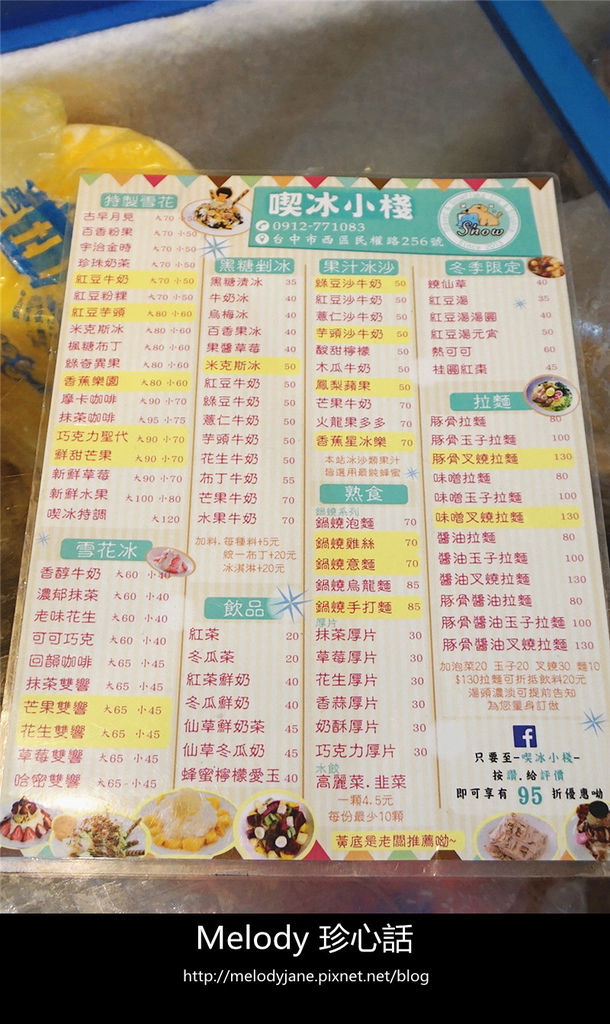 喫冰小棧
0912-771083
台中市西區民權路256號
Show
特製雪花
古早月見 大70 小50
百香粉果 大70 小50
宇治金時 大70 小50
珍珠奶茶 大70 小50
紅豆牛奶 大70 小50
紅豆粉粿 大70 小50
紅豆芋頭 大80 小60
米克斯冰 大80 小60
楓糖布丁 大80 小60
綠奇異果 大80 小60
香蕉樂園 大80 小60
摩卡咖啡 大90 小70
抹茶咖啡 大95 小75
巧克力聖代 大90 小70
鮮甜芒果 大90 小70
新鮮草莓 大90 小70
新鮮水果 大100 小80
喫冰特調 大120
雪花冰
香醇牛奶 大60 小40
濃郁抹茶 大60 小40
老味花生 大60 小40
可可巧克 大60 小40
回韻咖啡 大65 小45
抹茶雙響 大65 小45
芒果雙響 大65 小45
花生雙響 大65 小45
草莓雙響 大65 小45
哈密雙響 大65 小45
黑糖剉冰
黑糖清冰 35
牛奶冰 40
烏梅冰 40
百香果冰 40
果醬草莓 40
米克斯冰 50
紅豆牛奶 50
綠豆牛奶 50
薏仁牛奶 50
芋頭牛奶 50
花生牛奶 50
布丁牛奶 55
芒果牛奶 70
水果牛奶 70
加料.每種料+5元
統一布丁+20元
冰淇淋+20元
飲品
紅茶 20
冬瓜茶 20
紅茶鮮奶 40
冬瓜鮮奶 40
仙草鮮奶茶 45
仙草冬瓜奶 45
蜂蜜檸檬愛玉 40
果汁冰沙
綠豆沙牛奶 50
紅豆沙牛奶 50
薏仁沙牛奶 50
芋頭沙牛奶 50
酸甜檸檬 50
木瓜牛奶 50
鳳梨蘋果 50
芒果牛奶 70
火龍果多多 70
香蕉星冰樂 70
本站冰沙類果汁
皆選用最裝蜂蜜
熟食
鍋燒系列
鍋燒泡麵 70
鍋燒雞絲 70
鍋燒意麵 70
鍋燒烏龍麵 85
鍋燒手打麵 85
厚片
抹茶厚片 30
草莓厚片 30
花生厚片 30
香蒜厚片 30
奶酥厚片 30
巧克力厚片 30
水餃
高麗菜.韭菜
一顆4.5元
每份最少10顆
冬季限定
燒仙草 40
紅豆湯 40
紅豆湯湯圓 40
紅豆湯元宵 50
熱可可 60
桂圓紅棗 45
拉麵
豚骨拉麵 80
豚骨玉子拉麵 100
豚骨叉燒拉麵 130
味噌拉麵 80
味噌玉子拉麵 100
味噌叉燒拉麵 130
醬油拉麵 80
醬油玉子拉麵 100
醬油叉燒拉麵 130
豚骨醬油拉麵 80
豚骨醬油玉子拉麵 100
豚骨醬油叉燒拉麵 130
加泡菜20 玉子20 叉燒30 麵10
$130拉麵可折抵飲料20元
湯頭濃淡可提前告知
為您量身訂做
只要至-喫冰小棧-
按讚.給評價
即可享有 95 折優惠呦
黃底是老闆推薦呦~
Melody 珍心話
http://melodyjane.pixnet.net/blog